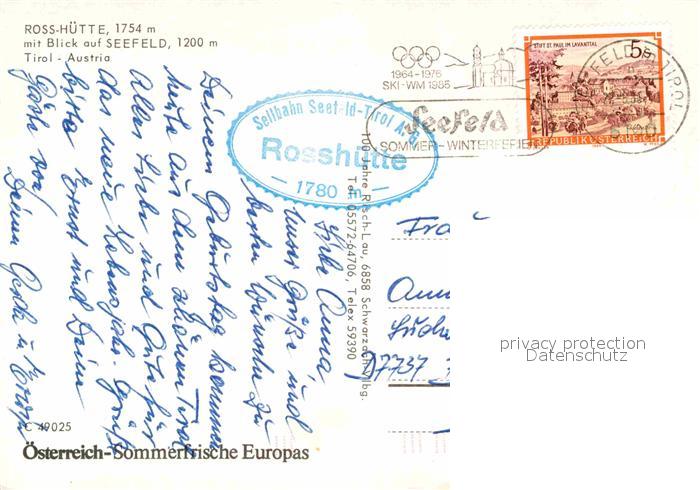 ROSS-HÜTTE, 1754 m
mit Blick auf SEEFELD, 1200 m
Tirol - Austria
1964-1976
SKI-WM 1985
Seefeld
SOMMER-WINTERFERIEN
STIFT ST. PAUL IM LAVANTTAL
5 S
REPUBLIK ÖSTERREICH
SEEFELD TIROL
6100
Seilbahn Seefeld-Tirol A.G.
Rosshütte
1780 m
100 Jahre Risch-Lau, 6858 Schwarzach-Vlbg.
Tel. 05572-64706, Telex 59390
Liebe Anna,
unsere Grüße und
besten Wünsche zu
Deinem Geburtstag kommen
heute aus dem schönen Tirol
Alles Liebe und Gute für
das neue Lebensjahr. Grüß
bitte Ernst und Deine
Gäste von
Deiner Gerda u.
Frau
Anna
D7737
privacy protection
Datenschutz
C 49025
Österreich-Sommerfrische Europas